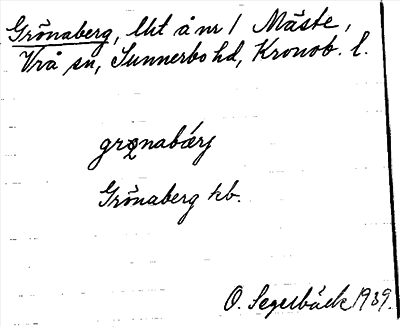 Grönaberg, lht å nr 1 Mäste,
Vrå sn, Sunnerbo hd, Kronob. l.
grønabærj
Grönaberg kb.
O. Segerbäck 1939.